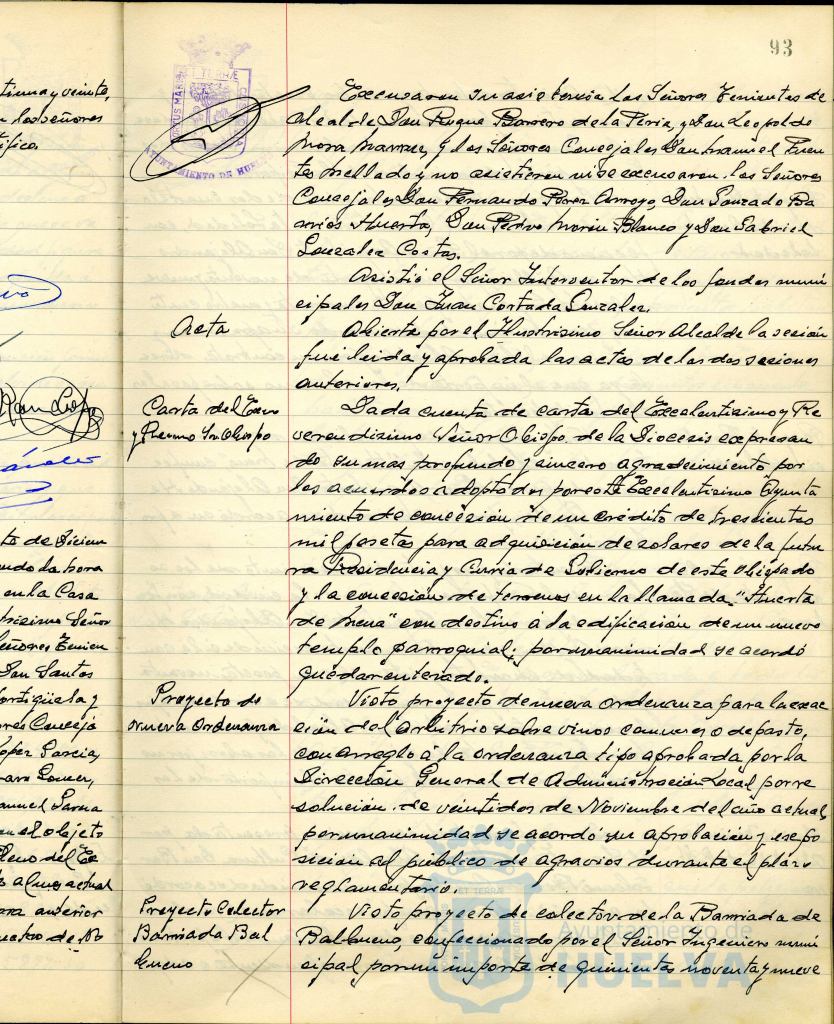 93
tinua y veinte,
n los señores
tifico.
to de Diciem
ndo la hora
en la Casa
trisimo Señor
Señores Tenien
Don Santos
ortigüela y
res Conceja
opez Garcia,
anuel Garcia
en el objeto
Pleno del Ex
ora anterior
ORTUS MARIS ET TERRÆ CUSTODIA
AYUNTAMIENTO DE HUELVA
Excusaron su asistencia los Señores Tenientes de
Alcalde Don Roque Barrero de la Peña, y Don Leopoldo
Mora y los Señores Concejales Don Manuel Fuen
tes Mellado y no asistieron ni se excusaron los Señores
Concejales Don Fernando Perez Arroyo, Don Gonzado Ba
rrios Huerta, Don Pedro Morón Blanco y Don Gabriel
Gonzalez Costas.
Asistió el Señor Interventor de los fondos muni
cipales Don Juan Cortada Gonzalez.
Acta
Abierta por el Ilustrisimo Señor Alcalde la sesión
fué leida y aprobada las actas de las dos sesiones
anteriores.
Carta del Excmo
y Rvmo Sr. Obispo
Dada cuenta de carta del Excelentisimo y Re
verendisimo Señor Obispo de la Diocesis expresan
do su mas profundo y sincero agradecimiento por
los acuerdos adoptados por este Excelentisimo Ayunta
miento de concesión de un crédito de trescientas
mil pesetas para adquisición de solares de la futu
ra Residencia y Curia de Gobierno de este Obispado
y la concesión de terrenos en la llamada "Huerta
de Mena" con destino á la edificación de un nuevo
templo parroquial; por unanimidad se acordó
quedar enterado.
Proyecto de
nueva Ordenanza
Visto proyecto de nueva ordenanza para la exac
ción del arbitrio sobre vinos comunes o de pasto,
con arreglo á la ordenanza tipo aprobada por la
Dirección General de Administración Local por re
solución de veintidos de Noviembre del año actual,
por unanimidad se acordó su aprobación y expo
sición al público de agravios durante el plazo
reglamentario.
Proyecto Colector
Barriada Bal
bueno
Visto proyecto de colector de la Barriada de
Balbueno, confeccionado por el Señor Ingeniero muni
cipal, por un importe de quinientas noventa y nueve
Ayuntamiento de
HUELVA